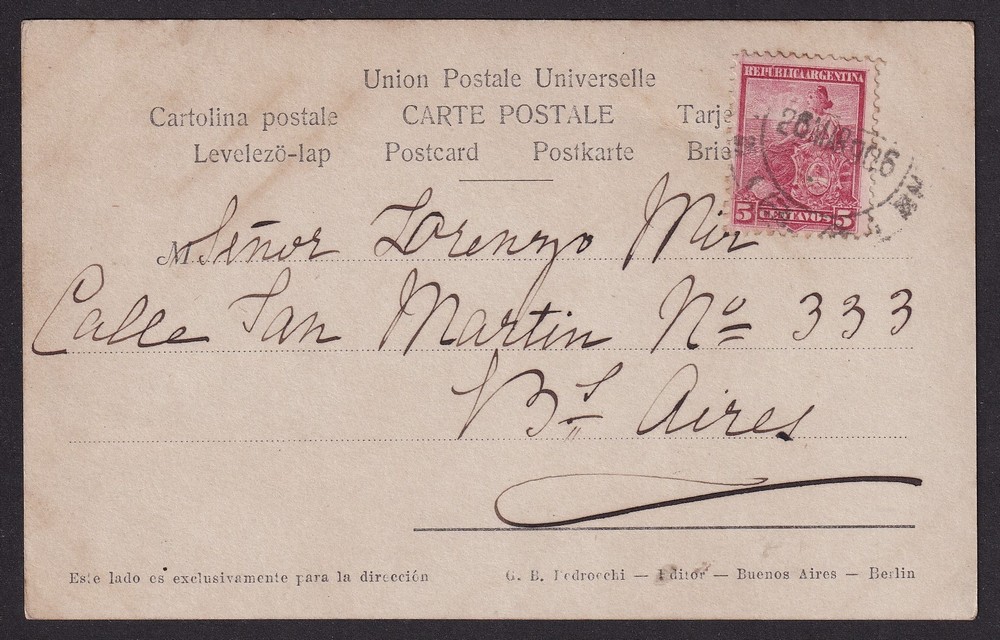 Union Postale Universelle
Cartolina postale CARTE POSTALE Tarje
Levelezö-lap Postcard Postkarte Brie
REPUBLICA ARGENTINA
26 MAR 1906
5 CENTAVOS 5
M Señor Lorenzo Mir
Calle San Martin No 333
Bs Aires
Este lado es exclusivamente para la dirección
G. B. Pedrocchi — Editor — Buenos Aires — Berlin